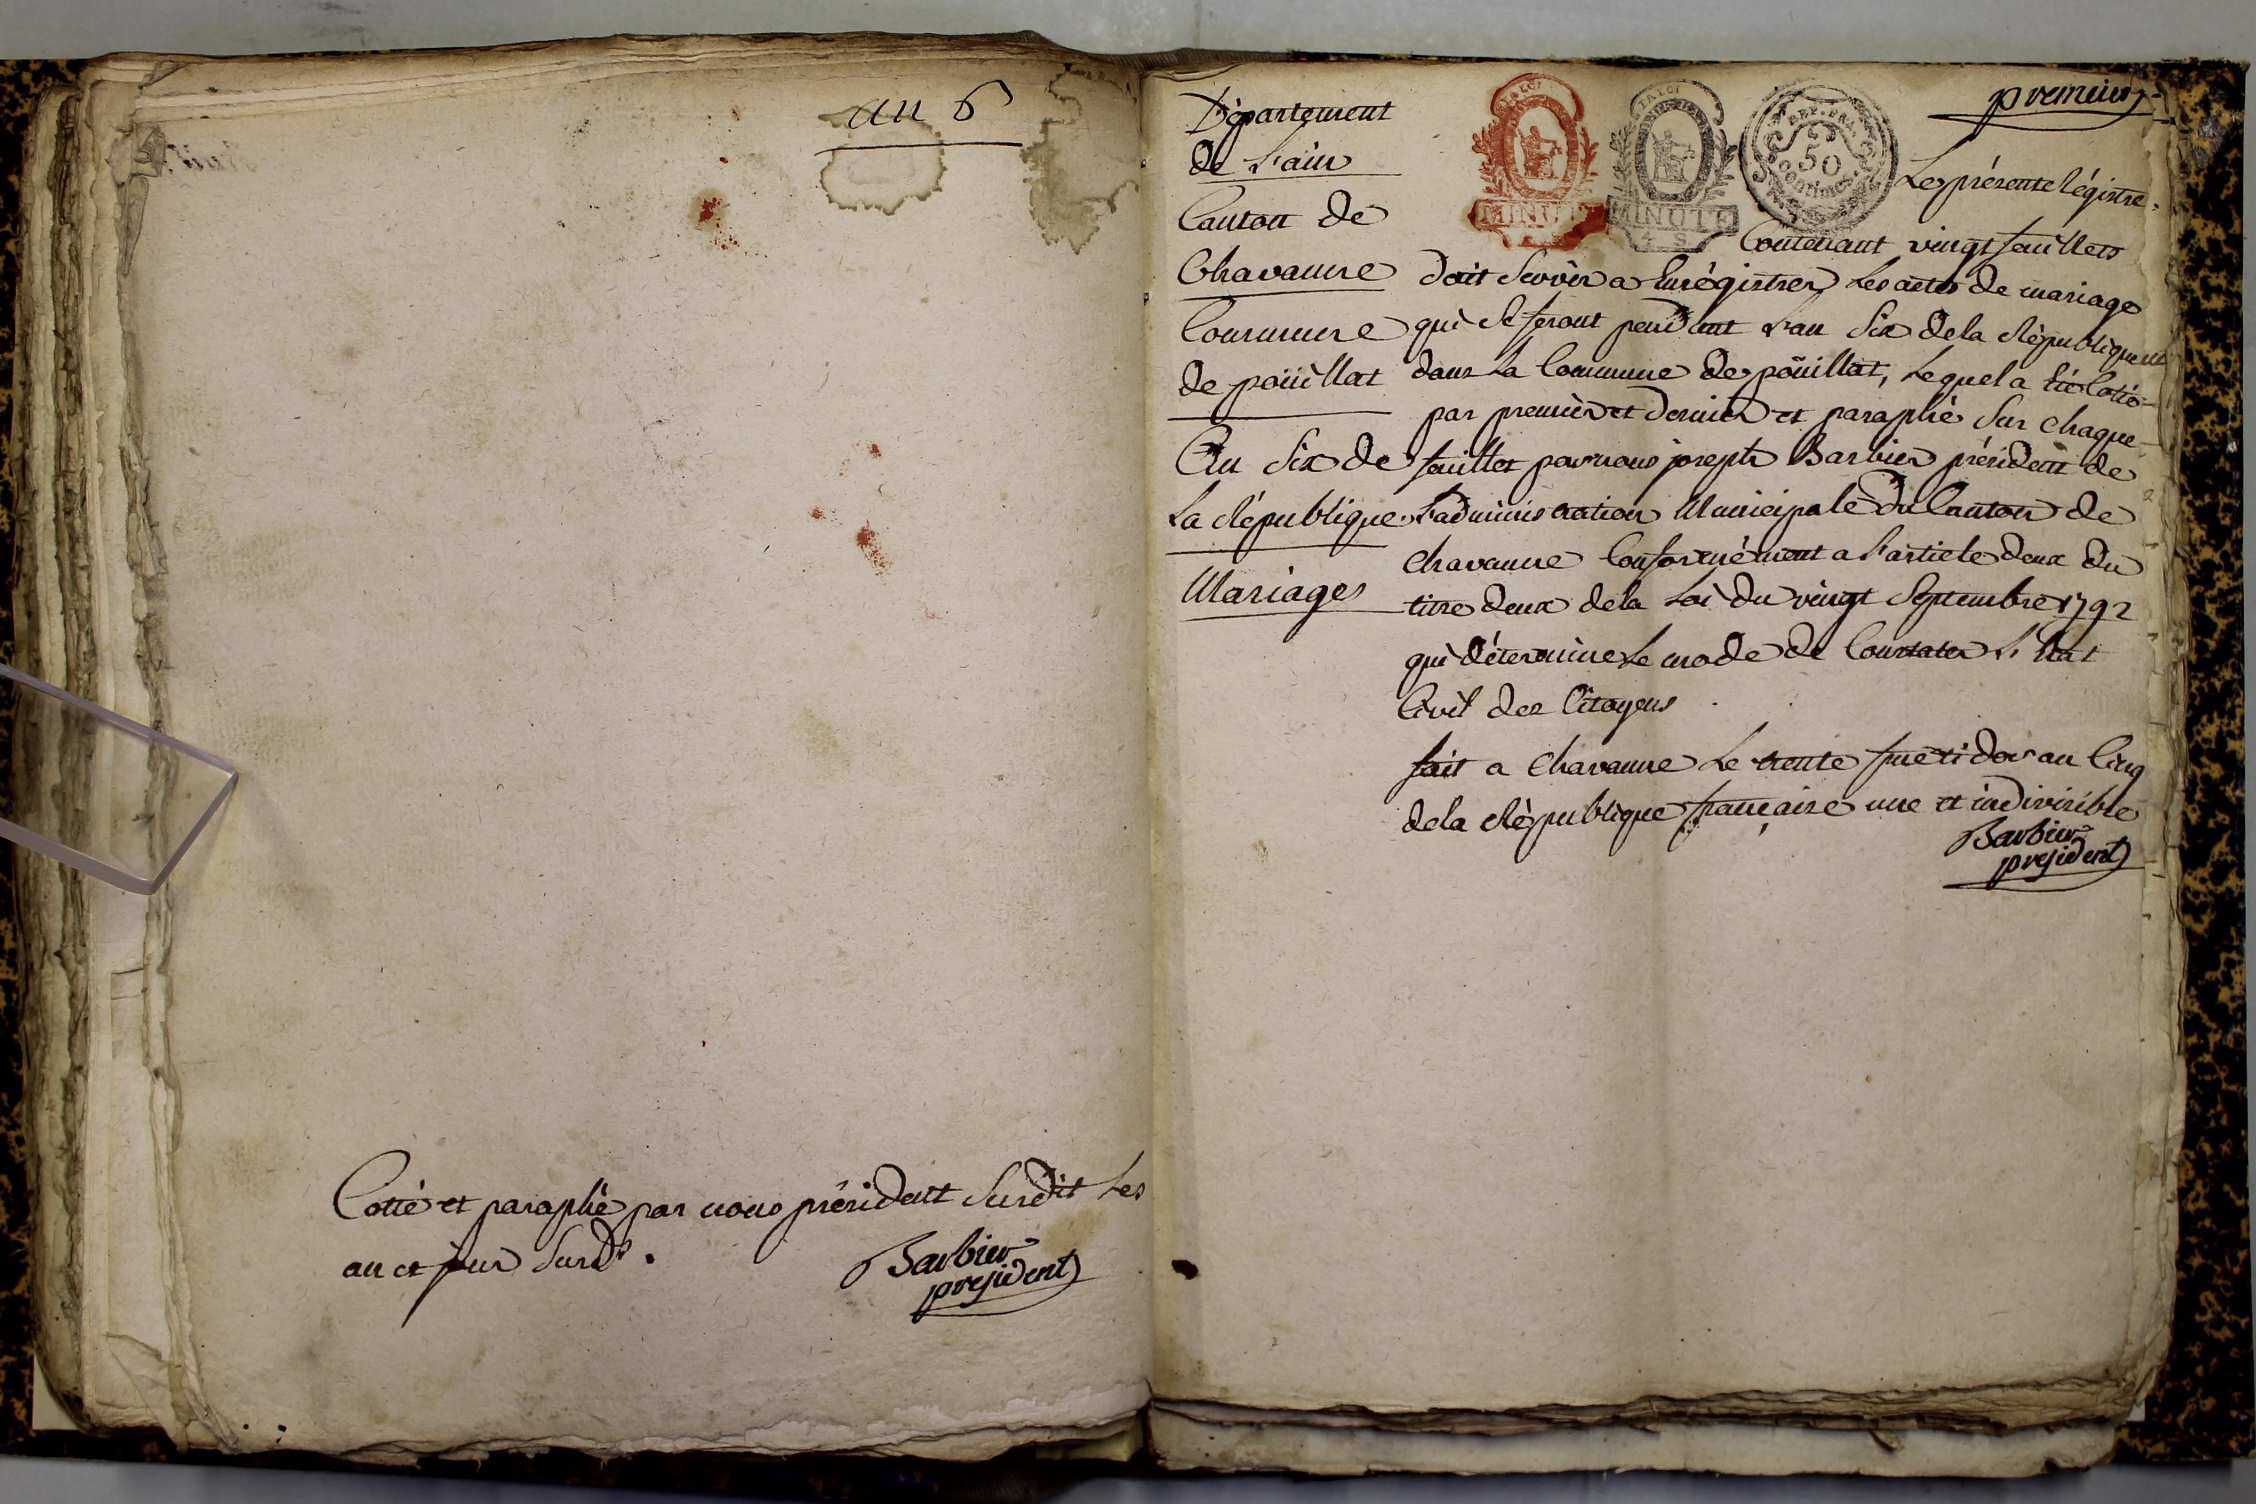 an 6
Cotté et paraphé par nous président Susdit Les
an et jour Susdt.
Barbier
president
premier
Département
de L'ain
Canton de
Chavanne
Commune
de poüillat
An Six de
La République.
Mariages
LA LOI
MINUTE
LA LOI
MINUTE
REP. FRA.
50
centimes.
Le présente Régistre
Contenant vingt feuillets
doit Servir a Enrégistrer Les actes de mariage
qui Se feront pendant L'an Six dela République
dans La Commune de poüillat, Lequel a Eté Cotté
par premier et dernier et paraphé Sur chaque
feuillet par nous joseph Barbier président de
L'administration Municipale du Canton de
chavanne Conformément a L'article deux du
titre deux dela Loi du vingt Septembre 1792
qui détermine Le mode de Constater L'Etat
Civil des Citoyens
fait a Chavanne Le trente fructidor an Cinq
dela République française une et indivisible
Barbier
president